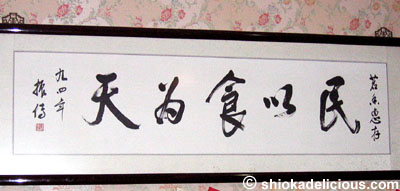 惠存
民以食为天
九四年
振
© shiokadelicious.com